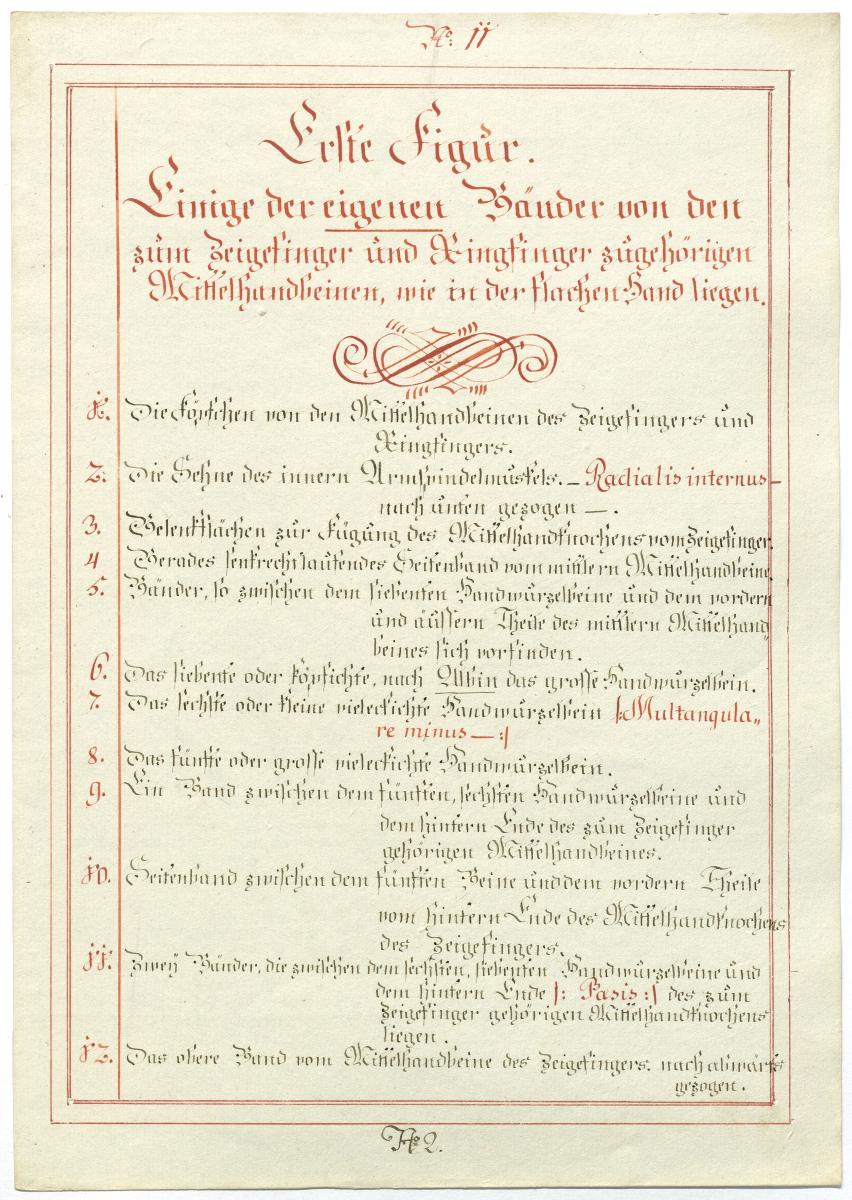 No: 11
Erste Figur.
Einige der eigenen Bänder von den
zum Zeigefinger und Ringfinger zugehörigen
Mittelhandbeinen, wie in der flachen Hand liegen.
1. Die Köpfchen von den Mittelhandbeinen des Zeigefingers und
Ringfingers.
2. Die Sehne des innern Armspindelmuskels. – Radialis internus –
nach unten gezogen –.
3. Gelenkflächen zur Fügung des Mittelhandknochens vom Zeigefinger.
4 Gerades senkrechtlaufendes Seitenband vom mittlern Mittelhandbeine.
5. Bänder, so zwischen dem siebenten Handwurzelbeine und dem vordern
und äussern Theile des mittlern Mittelhand
beines sich vorfinden.
6. Das siebente oder köpfichte, nach Albin das grosse Handwurzelbein.
7. Das sechste oder kleine vieleckichte Handwurzelbein |: Multangula„
re minus –:|
8. Das fünfte oder grosse vieleckichte Handwurzelbein.
9. Ein Band zwischen dem fünften, sechsten Handwurzelbeine und
dem hintern Ende des zum Zeigefinger
gehörigen Mittelhandbeines.
10. Seitenband zwischen dem fünften Beine und dem vordern Theile
vom hintern Ende des Mittelhandknochens
des Zeigefingers.
11. Zwey Bänder, die zwischen dem sechsten, siebenten Handwurzelbeine und
dem hintern Ende |: Basis :| des zum
Zeigefinger gehörigen Mittelhandknochens
liegen.
12. Das obere Band vom Mittelhandbeine des Zeigefingers. nach abwärts
gezogen.
No 2.